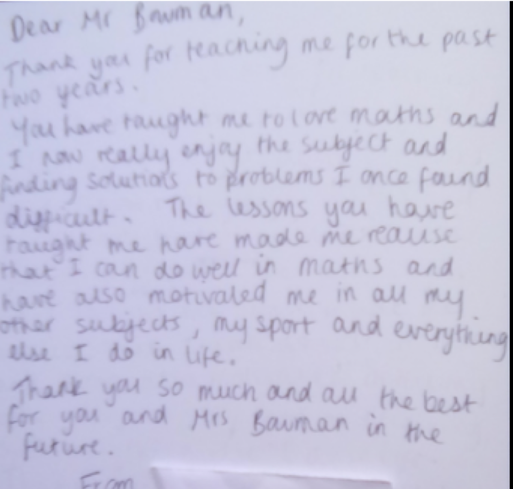 Dear Mr Bowman,
Thank you for teaching me for the past
two years.
You have taught me to love maths and
I now really enjoy the subject and
finding solutions to problems I once found
difficult. The lessons you have
taught me have made me realise
that I can do well in maths and
have also motivated me in all my
other subjects, my sport and everything
else I do in life.
Thank you so much and all the best
for you and Mrs Bowman in the
future.
From